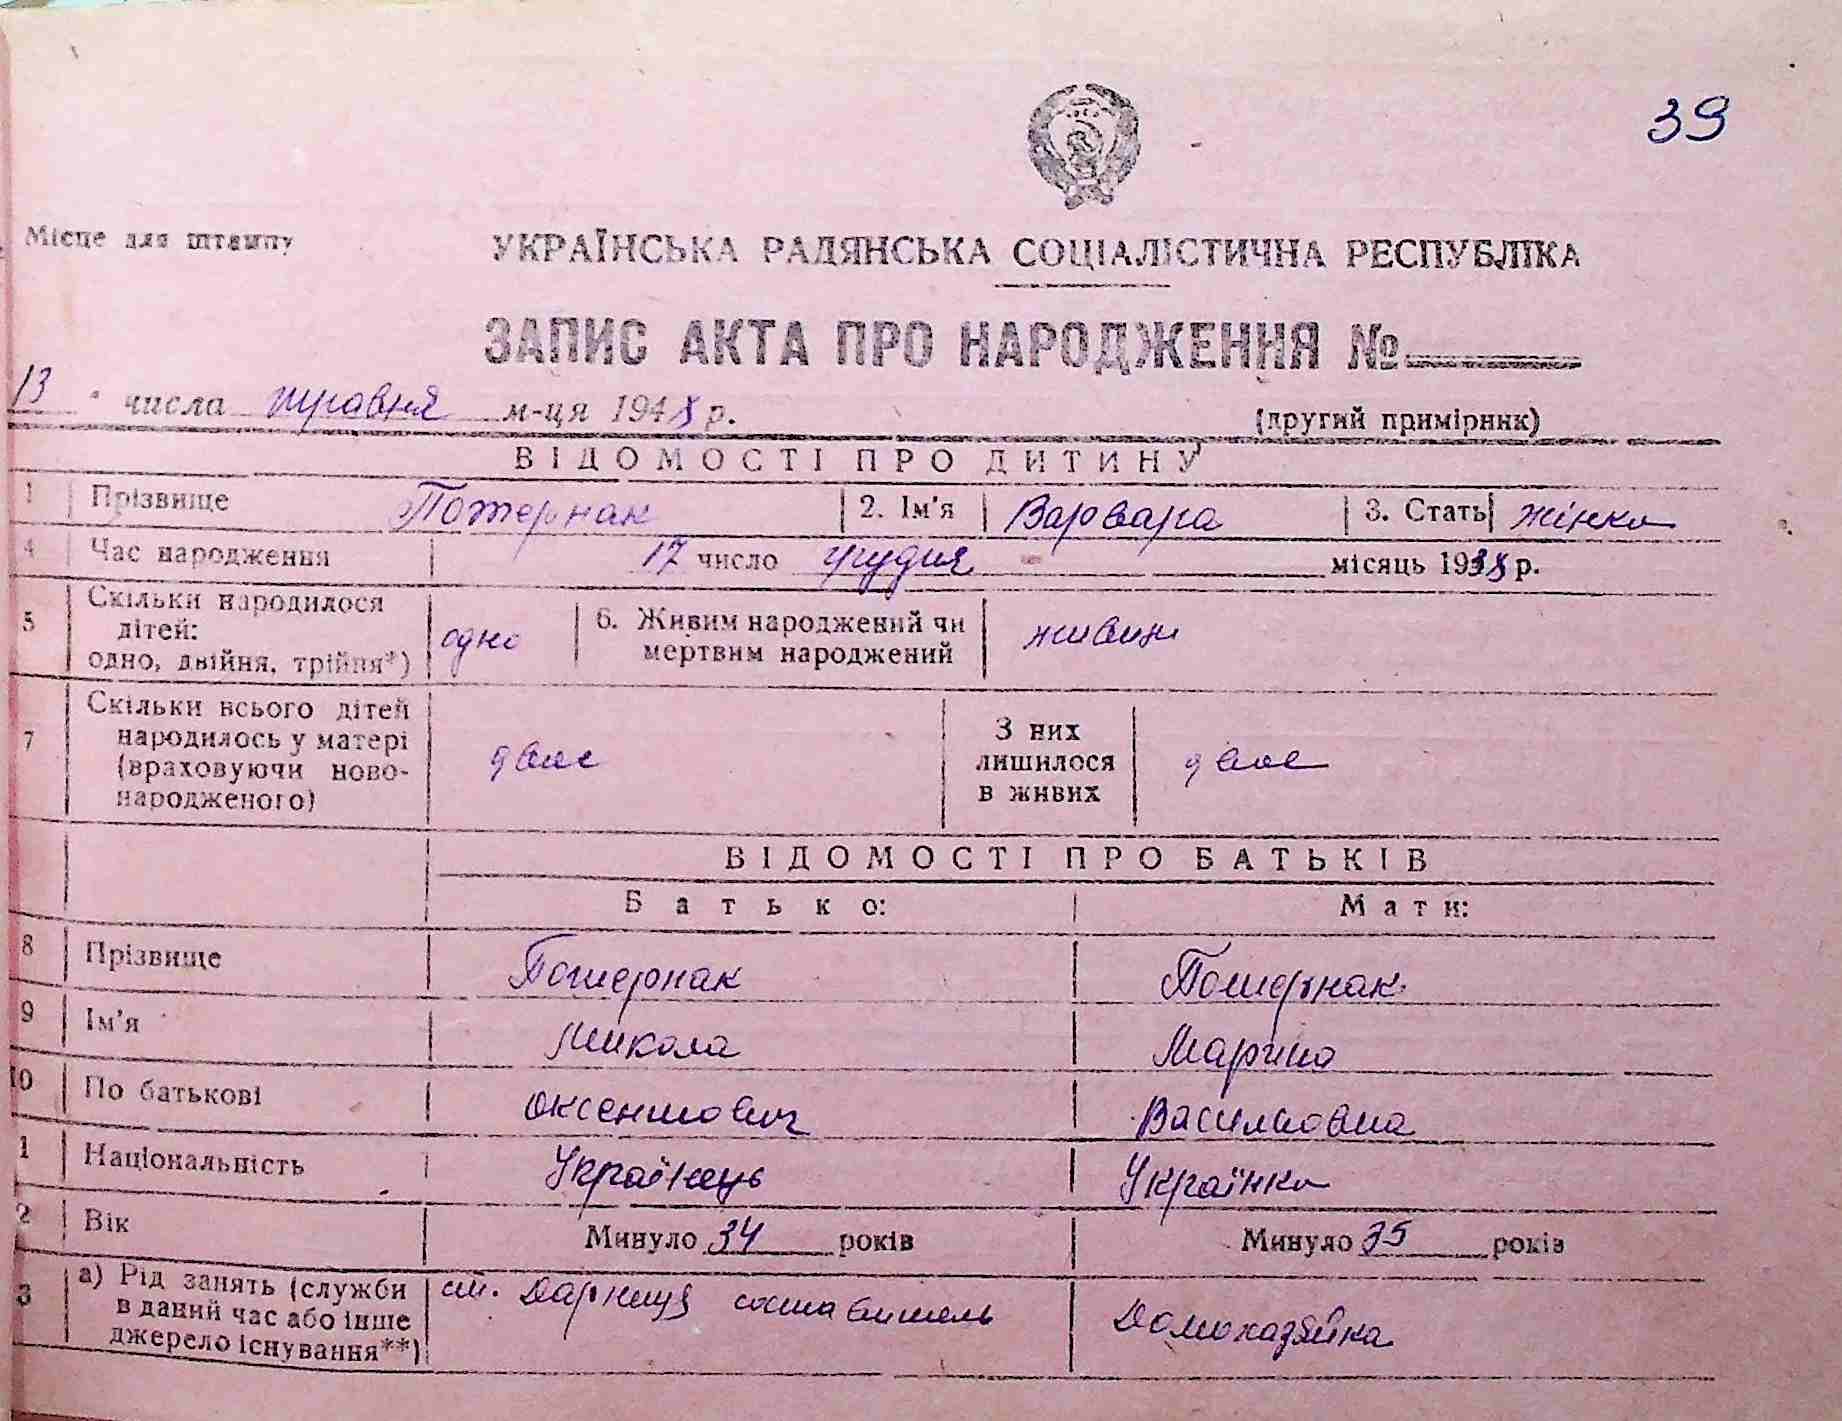 39
Місце для штампу
УКРАЇНСЬКА РАДЯНСЬКА СОЦІАЛІСТИЧНА РЕСПУБЛІКА
ЗАПИС АКТА ПРО НАРОДЖЕННЯ №
13 числа травня м-ця 1948 р.
(другий примірник)
ВІДОМОСТІ ПРО ДИТИНУ
1 Прізвище Потернак 2. Ім'я Варвара 3. Стать жінка
4 Час народження 17 число грудня місяць 1938 р.
5 Скільки народилося
дітей:
одно, двійня, трійня*) одно 6. Живим народжений чи
мертвим народжений живим
7 Скільки всього дітей
народилось у матері
(враховуючи ново-
народженого) двоє З них
лишилося
в живих двоє
ВІДОМОСТІ ПРО БАТЬКІВ
Батько: Мати:
8 Прізвище Потернак Потернак
9 Ім'я Микола Марина
10 По батькові Оксентович Василівна
1 Національність Українець Українка
2 Вік Минуло 34 років Минуло 35 років
3 а) Рід занять (служби
в даний час або інше
джерело існування**) ст. Дарниця составитель Домохазяйка